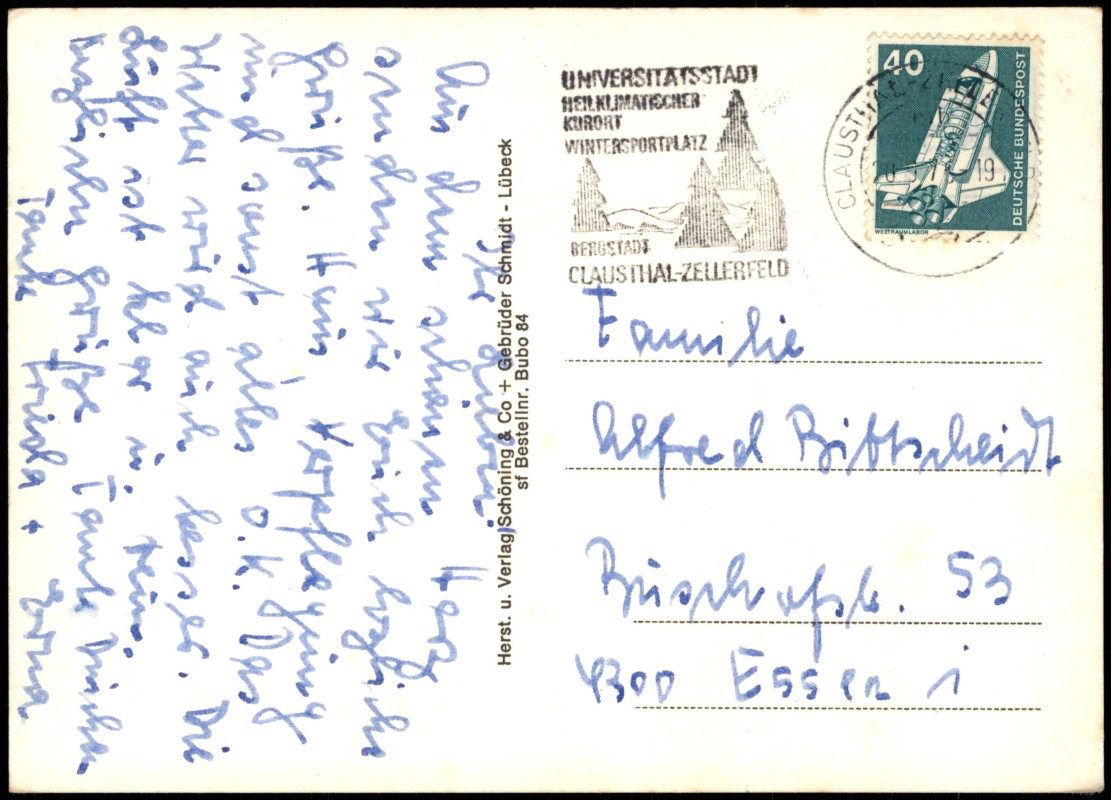 Ihr Lieben!
Aus dem schönen Harz
senden wir Euch herzliche
Grüße. Haus Verpflegung
und sonst alles O.K. Das
Wetter wird auch besser. Die
Luft ist klar u. rein.
Herzliche Grüße Tante
Tante Frieda + Erna
Herst. u. Verlag Schöning & Co + Gebrüder Schmidt - Lübeck
sf Bestellnr. Bubo 84
UNIVERSITÄTSSTADT
HEILKLIMATISCHER
KURORT
WINTERSPORTPLATZ
BERGSTADT
CLAUSTHAL-ZELLERFELD
40
DEUTSCHE BUNDESPOST
WELTRAUMLABOR
Familie
Alfred Bittscheidt
Buschhofstr. 53
4300 Essen 1